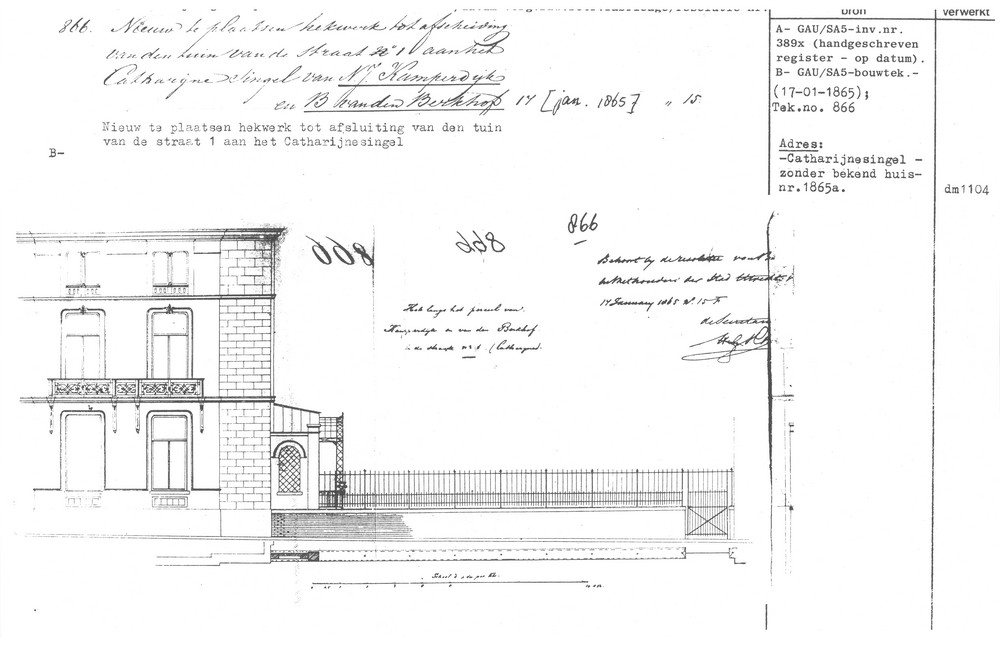 bron
verwerkt
866. Nieuw te plaatsen hekwerk tot afscheiding
van den tuin van de straat no 1 aan het
Catharijne Singel van N.J. Kamperdijk
en B van den Berkhof 17 [jan. 1865] " 15.
Nieuw te plaatsen hekwerk tot afsluiting van den tuin
van de straat 1 aan het Catharijnesingel
B-
A- GAU/SA5-inv.nr.
389x (handgeschreven
register - op datum).
B- GAU/SA5-bouwtek.-
(17-01-1865);
Tek.no. 866
Adres:
-Catharijnesingel -
zonder bekend huis-
nr.1865a.
dm1104
866
866
866
Behoort bij de resolutie van
Wethouders der Stad Utrecht
17 January 1865 No 15
de Secretaris
Hek langs het perceel van
Kamperdijk en van den Berkhof
in de straat no 1. (Catharijne